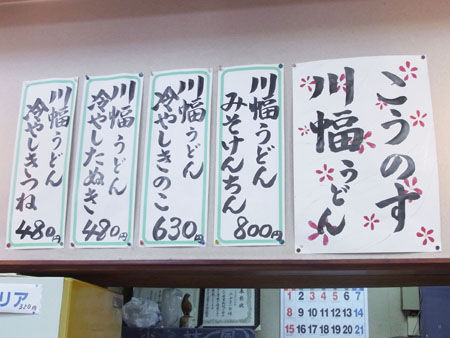 こうのす
川幅うどん
川幅うどん
みそけんちん
800円
川幅うどん
冷やしきのこ
630円
川幅うどん
冷やしたぬき
480円
川幅うどん
冷やしきつね
480円
リア
320円
表彰状
1 2 3 4 5 6 7
8 9 10 11 12 13 14
15 16 17 18 19 20 21